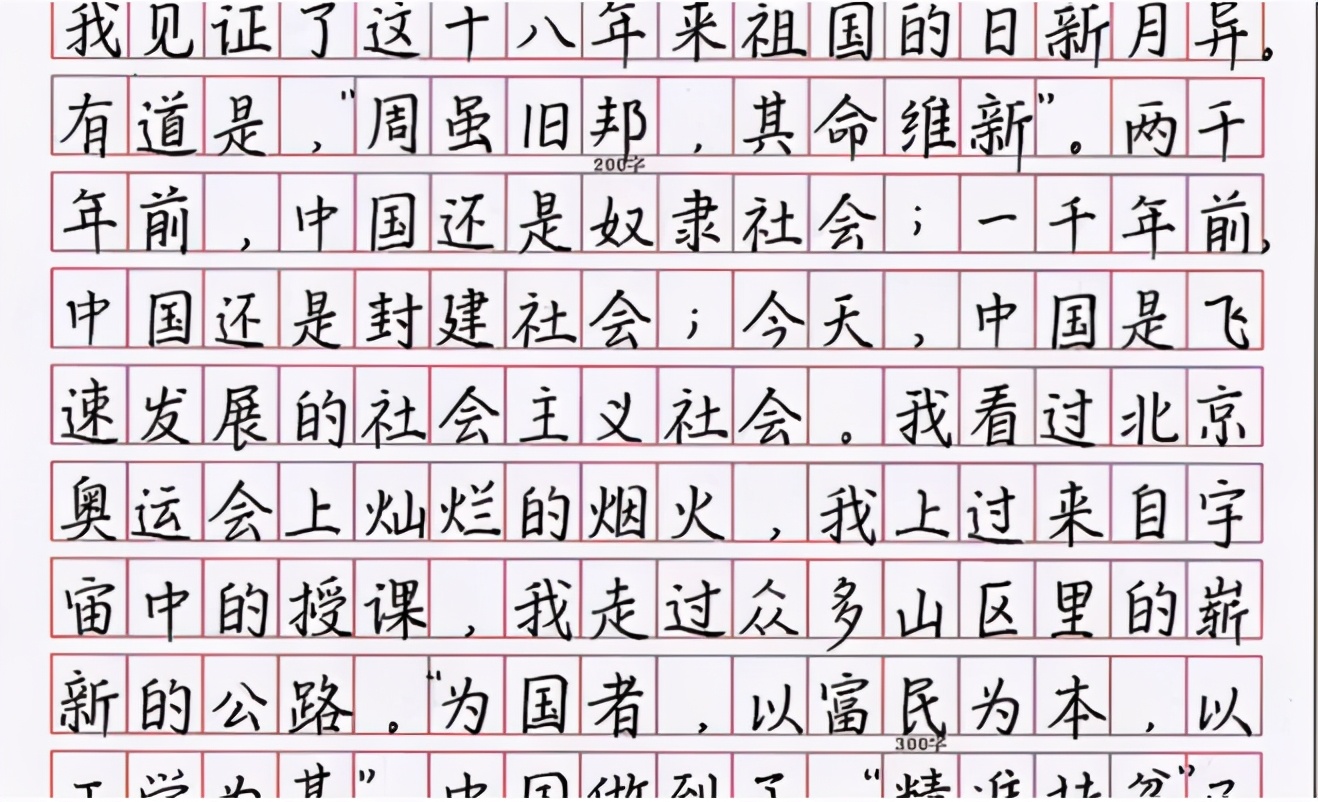 我见证了这十八年来祖国的日新月异。
有道是，“周虽旧邦，其命维新”。两千
200字
年前，中国还是奴隶社会；一千年前，
中国还是封建社会；今天，中国是飞
速发展的社会主义社会。我看过北京
奥运会上灿烂的烟火，我上过来自宇
宙中的授课，我走过众多山区里的崭
新的公路。“为国者，以富民为本，以
300字
正学为基”，中国做到了“精准扶贫”